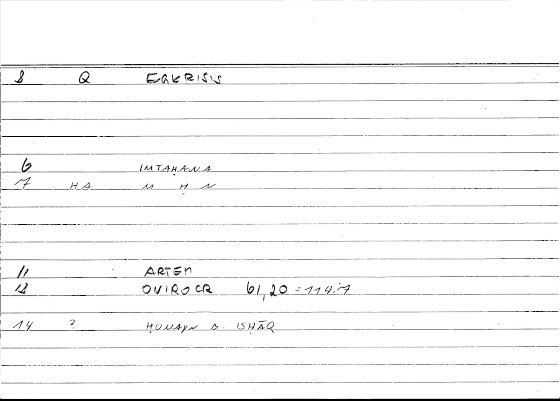 2 Q EGKRISIS
6 IMTAḤANA
7 HA M Ḥ N
11 ARTEM
12 ONIROCR 61,20 = 114:7
14 ? ḤUNAYN B. ISḤĀQ